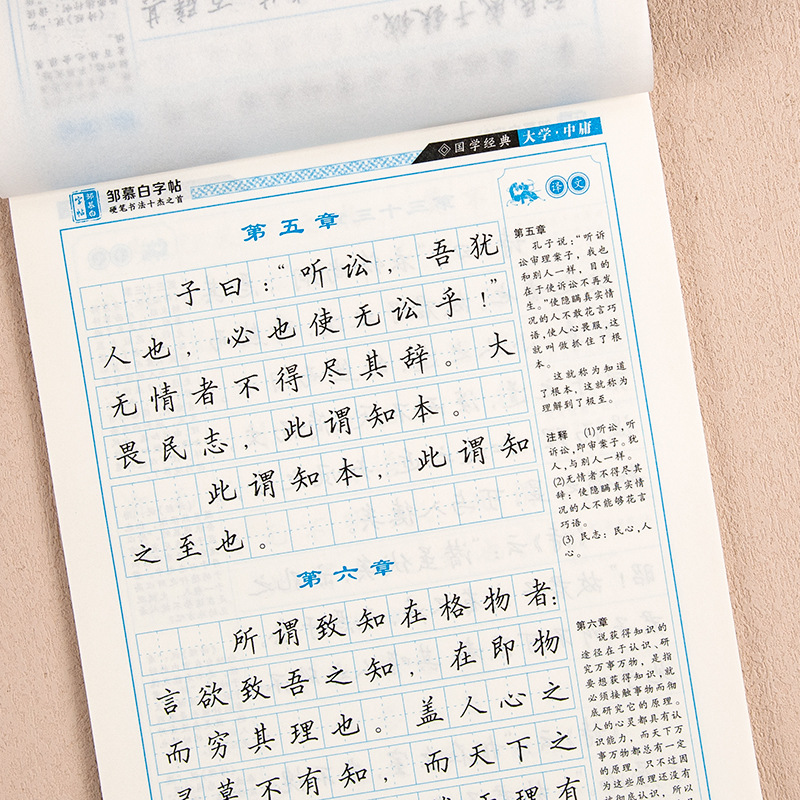 国学经典 大学·中庸
邹慕白字帖
邹慕白字帖
硬笔书法十杰之首
第五章
子曰：“听讼，吾犹
人也，必也使无讼乎！”
无情者不得尽其辞。大
畏民志，此谓知本。
此谓知本，此谓知
之至也。
第六章
所谓致知在格物者：
言欲致吾之知，在即物
而穷其理也。盖人心之
灵莫不有知，而天下之
理有
译文
第五章
孔子说：“听诉
讼审理案子，我也
和别人一样，目的
在于使诉讼不再发
生。”使隐瞒真实情
况的人不敢花言巧
语，使人心畏服，这
就叫做抓住了根
本。
这就称为知道
了根本，这就称为
理解到了极至。
注释 (1)听讼，听
诉讼，即审案子。犹
人，与别人一样。
(2)无情者不得尽其
辞：使隐瞒真实情
况的人不能够花言
巧语。
(3) 民志：民心，人
心。
第六章
说获得知识的
途径在于认识、研
究万事万物，是指
要想获得知识，就
必须接触事物而彻
底研究它的原理。
人的心灵都具有认
识能力，而天下万
事万物都总有一定
的原理，只不过因
为这些原理还没有
被彻底认识，所以